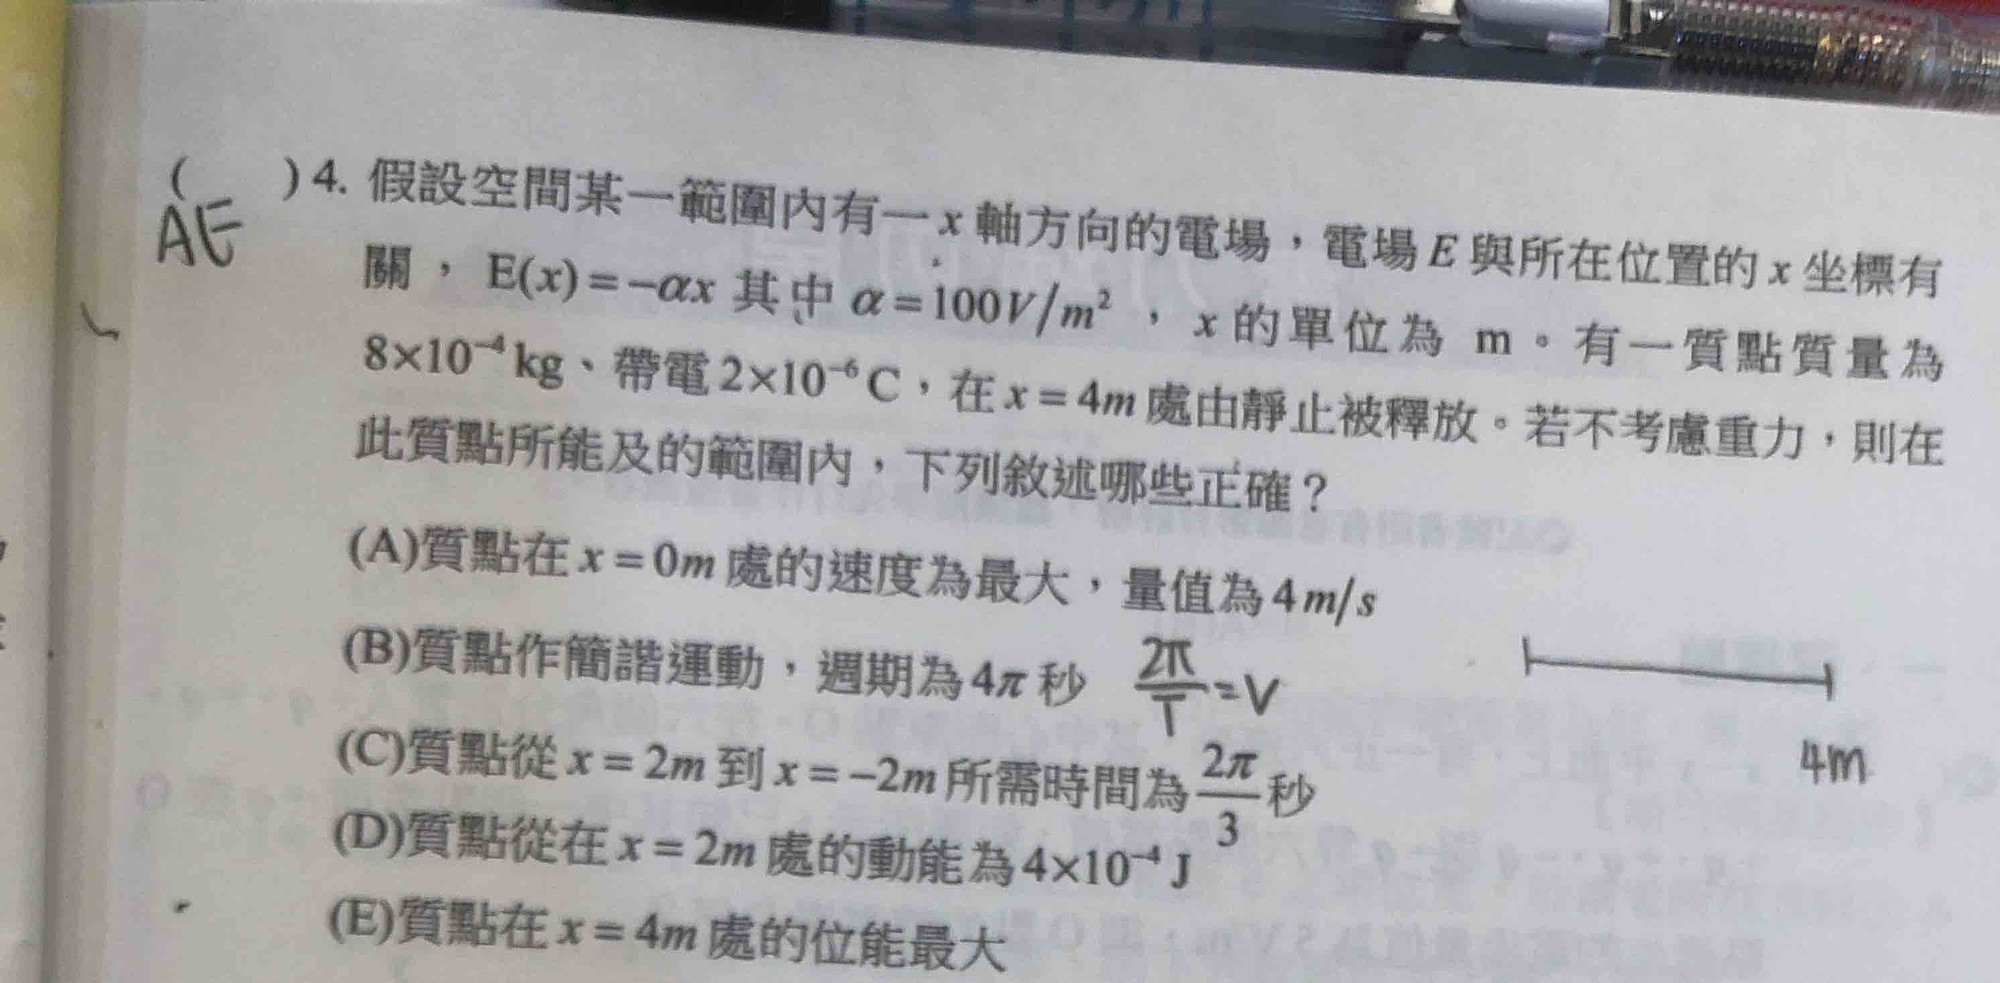 ( )4. 假設空間某一範圍內有一 x 軸方向的電場，電場 E 與所在位置的 x 坐標有
AE
關，E(x)=-αx 其中 α=100V/m²，x 的單位為 m。有一質點質量為
8×10⁻⁴kg、帶電 2×10⁻⁶C，在 x=4m 處由靜止被釋放。若不考慮重力，則在
此質點所能及的範圍內，下列敘述哪些正確？
(A)質點在 x=0m 處的速度為最大，量值為 4m/s
(B)質點作簡諧運動，週期為 4π 秒 2π/T=V
(C)質點從 x=2m 到 x=-2m 所需時間為 2π/3 秒
4m
(D)質點從在 x=2m 處的動能為 4×10⁻⁴J
(E)質點在 x=4m 處的位能最大